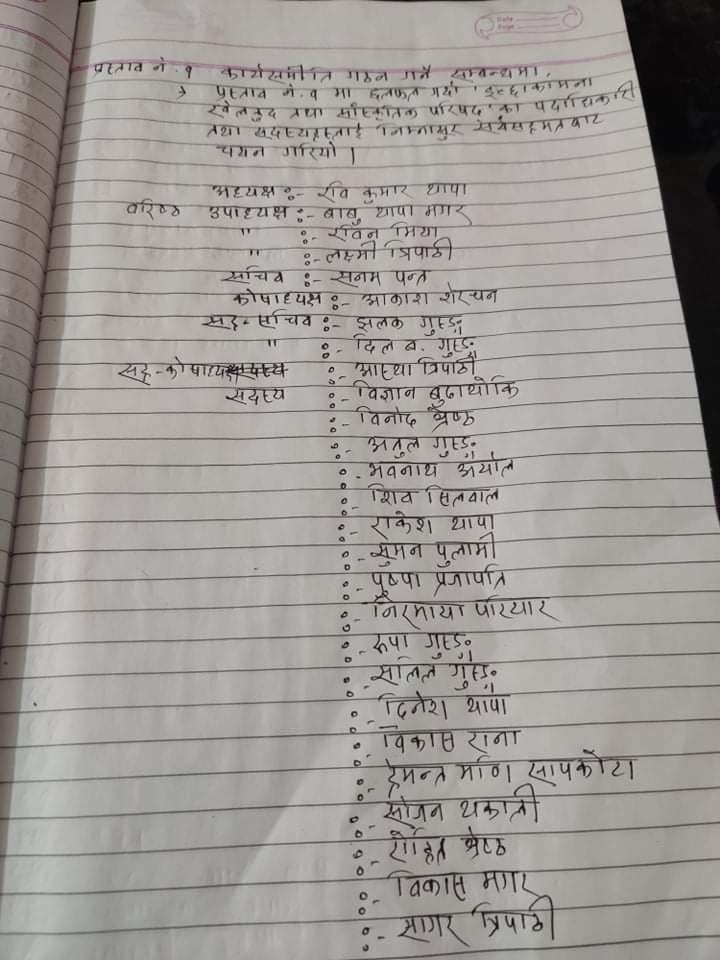 Date
Page
प्रस्ताव नं. १ कार्यसमिति गठन गर्ने सम्बन्धमा,
→ प्रस्ताव नं. १ मा छलफल गर्दा 'इच्छाकामना
खेलकुद तथा सांस्कृतिक परिषद' का पदाधिकारी
तथा सदस्यहरुलाई निम्नानुसार सर्वसहमतबाट
चयन गरियो ।
अध्यक्ष :- रवि कुमार थापा
वरिष्ठ उपाध्यक्ष :- बाबु थापा मगर
" :- रविन मिया
" :- लक्ष्मी त्रिपाठी
सचिव :- सनम पन्त
कोषाध्यक्ष :- आकाश शेरचन
सह-सचिव :- झलक गुरुङ
" :- दिल ब. गुरुङ
सह-कोषाध्यक्ष :- आस्था त्रिपाठी
सदस्य :- विज्ञान बुढाथोकि
:- विनोद श्रेष्ठ
:- अतुल गुरुङ
:- भवनाथ अर्याल
:- शिव सिलवाल
:- राकेश थापा
:- सुमन पुलामी
:- पुष्पा प्रजापति
:- निरमाया परियार
:- रुपा गुरुङ
:- सलिल गुरुङ
:- दिनेश थापा
:- विकास राना
:- हेमन्त मणि सापकोटा
:- सोजन थकाली
:- रोहित श्रेष्ठ
:- विकास मगर
:- सागर त्रिपाठी